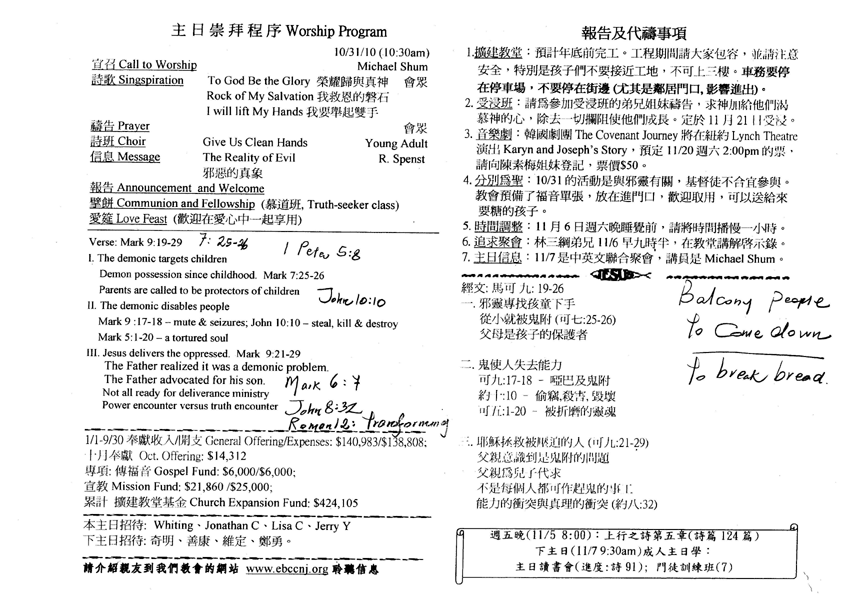 主日崇拜程序 Worship Program
10/31/10 (10:30am)
宣召 Call to Worship Michael Shum
詩歌 Singspiration To God Be the Glory 榮耀歸與真神 會眾
Rock of My Salvation 我救恩的磐石
I will lift My Hands 我要舉起雙手
禱告 Prayer 會眾
詩班 Choir Give Us Clean Hands Young Adult
信息 Message The Reality of Evil R. Spenst
邪惡的真象
報告 Announcement and Welcome
擘餅 Communion and Fellowship (慕道班, Truth-seeker class)
愛筵 Love Feast (歡迎在愛心中一起享用)
Verse: Mark 9:19-29 7: 25-26
1 Peter 5:8
I. The demonic targets children
Demon possession since childhood. Mark 7:25-26
Parents are called to be protectors of children John 10:10
II. The demonic disables people
Mark 9 :17-18 – mute & seizures; John 10:10 – steal, kill & destroy
Mark 5:1-20 – a tortured soul
III. Jesus delivers the oppressed. Mark 9:21-29
The Father realized it was a demonic problem.
The Father advocated for his son. Mark 6:7
Not all ready for deliverance ministry
Power encounter versus truth encounter John 8:32
Romans 12: Transforming
1/1-9/30 奉獻收入/開支 General Offering/Expenses: $140,983/$138,808;
十月奉獻 Oct. Offering: $14,312
專項: 傳福音 Gospel Fund: $6,000/$6,000;
宣教 Mission Fund: $21,860 /$25,000;
累計 擴建教堂基金 Church Expansion Fund: $424,105
本主日招待: Whiting、Jonathan C、Lisa C、Jerry Y
下主日招待: 奇明、善康、維定、鄭勇。
請介紹親友到我們教會的網站 www.ebccnj.org 聆聽信息
報告及代禱事項
1.擴建教堂：預計年底前完工。工程期間請大家包容，並請注意
安全，特別是孩子們不要接近工地，不可上三樓。車務要停
在停車場，不要停在街邊 (尤其是鄰居門口, 影響進出)。
2. 受浸班：請為參加受浸班的弟兄姐妹禱告，求神加給他們渴
慕神的心，除去一切攔阻使他們成長。定於 11 月 21 日受浸。
3. 音樂劇：韓國劇團 The Covenant Journey 將在紐約 Lynch Theatre
演出 Karyn and Joseph's Story，預定 11/20 週六 2:00pm 的票，
請向陳素梅姐妹登記，票價$50。
4. 分別為聖：10/31 的活動是與邪靈有關，基督徒不合宜參與。
教會預備了福音單張，放在進門口，歡迎取用，可以送給來
要糖的孩子。
5. 時間調整：11 月 6 日週六晚睡覺前，請將時間撥慢一小時。
6. 追求聚會：林三綱弟兄 11/6 早九時半，在教堂講解啓示錄。
7. 主日信息：11/7 是中英文聯合聚會，講員是 Michael Shum。
JESUS
經文: 馬可 九: 19-26
一. 邪靈專找孩童下手
從小就被鬼附 (可七:25-26)
父母是孩子的保護者
二. 鬼使人失去能力
可九:17-18 - 啞巴及鬼附
約十:10 - 偷竊,殺害,毀壞
可五:1-20 - 被折磨的靈魂
三. 耶穌拯救被壓迫的人 (可九:21-29)
父親意識到是鬼附的問題
父親為兒子代求
不是每個人都可作趕鬼的事工
能力的衝突與真理的衝突 (約八:32)
Balcony People
to Come down
to break bread.
週五晚(11/5 8:00)：上行之詩第五章(詩篇 124 篇)
下主日(11/7 9:30am)成人主日學：
主日讀書會(進度:詩 91)； 門徒訓練班(7)